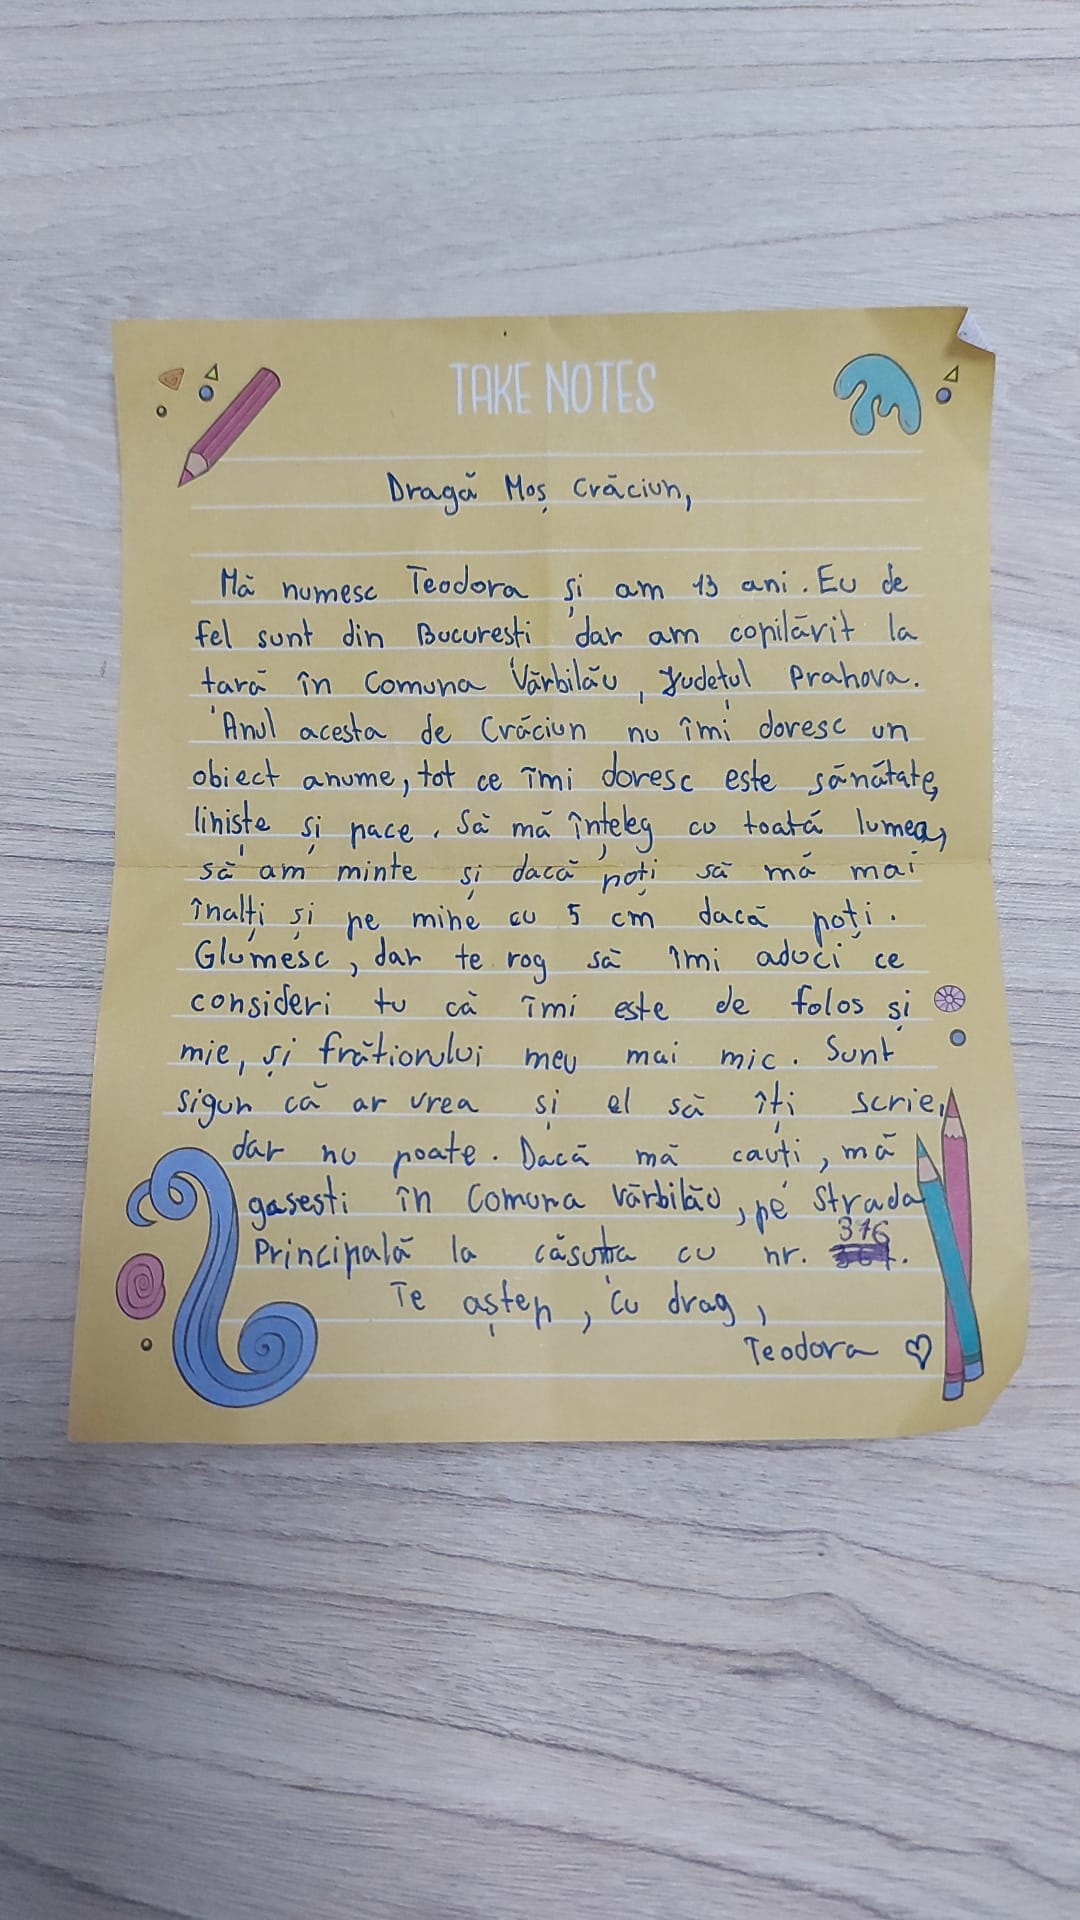 TAKE NOTES
Dragă Moș Crăciun,
Mă numesc Teodora și am 13 ani. Eu de
fel sunt din București dar am copilărit la
țară în Comuna Vărbilău, Județul Prahova.
Anul acesta de Crăciun nu îmi doresc un
obiect anume, tot ce îmi doresc este sănătate,
liniște și pace. Să mă înțeleg cu toată lumea,
să am minte și dacă poți să mă mai
înalți și pe mine cu 5 cm dacă poți.
Glumesc, dar te rog să îmi aduci ce
consideri tu că îmi este de folos și
mie, și frățiorului meu mai mic. Sunt
sigur că ar vrea și el să îți scrie,
dar nu poate. Dacă mă cauți, mă
gasesti în Comuna Vărbilău, pe Strada
Principală la căsuța cu nr. 316.
Te aștep, cu drag,
Teodora ♡